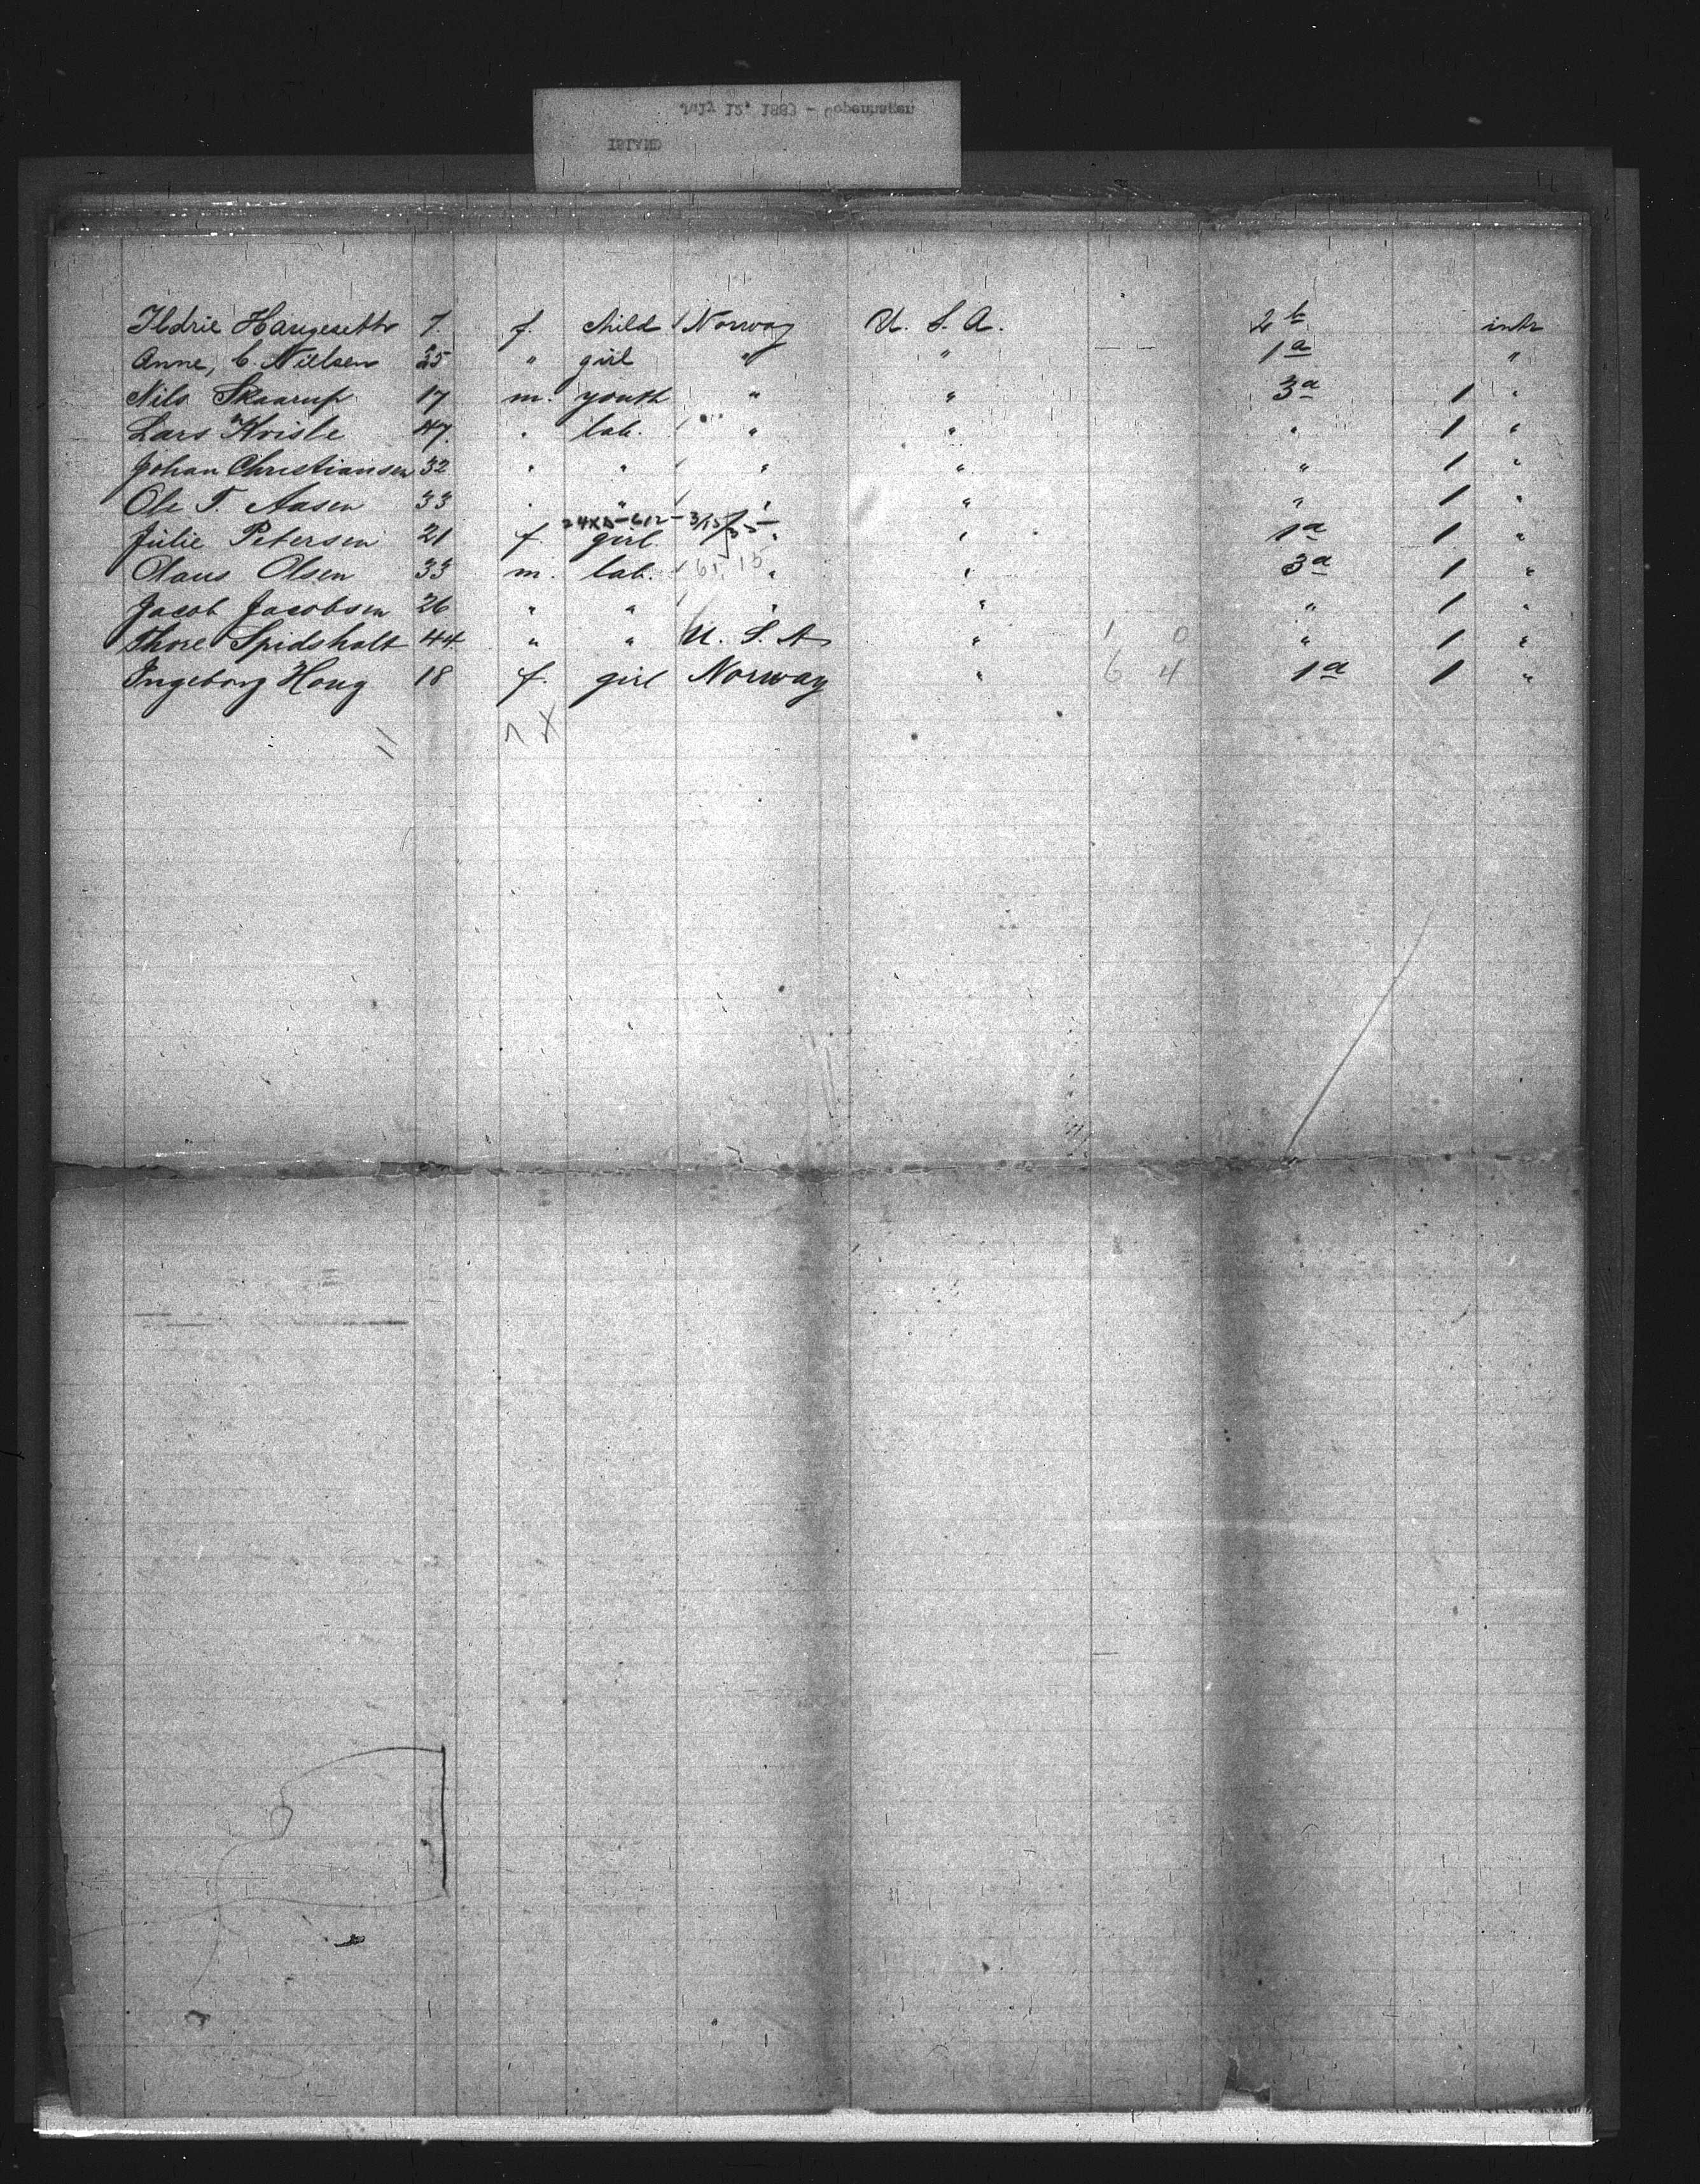 July 12, 1883 - Copenhagen
ISLAND
Ildrie Haugesette 7. f. child Norway U. S. A. 2b intr
Anne, C. Nielsen 25 " girl " " 1a "
Nils Skaarup 17 m. youth " " 3a 1 "
Lars Kvisle 47. " lab. " " " 1 "
Johan Christiansen 32 " " " " " 1 "
Ole T. Aasen 33 " " " " " 1 "
Julie Petersen 21 f. girl. " " 1a 1 "
Olaus Olsen 33 m. lab. " " 3a 1 "
Jacob Jacobsen 26 " " " " " 1 "
Thore Spidsholt 44. " " U. S. A " 1 0 " 1 "
Ingeborg Houg 18 f. girl Norway " 6 4 1a 1 "
11 7 X